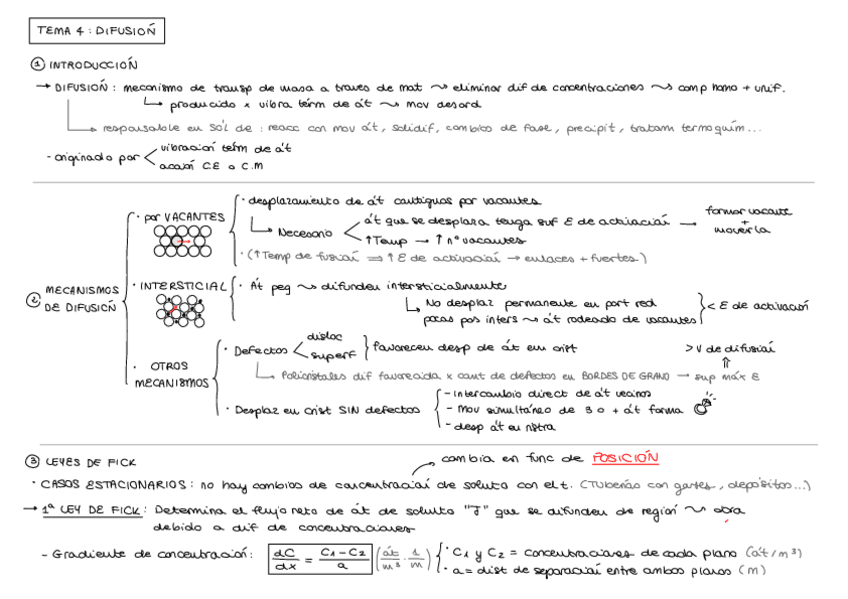 TEMA 4 : DIFUSIÓN
① INTRODUCCIÓN
→ DIFUSIÓN : mecanismo de transp de masa a traves de mat ⤳ eliminar dif de concentraciones ⤳ comp homo + unif.
↳ producido x vibra térm de át ⤳ mov desord
↳ responsable en sól de : reacc con mov át, solidif, cambios de fase, precipit, tratam termoquím...
- originado por < vibración térm de át
acción C.E o C.M
② MECANISMOS DE DIFUSIÓN
· por VACANTES
· desplazamiento de át contiguos por vacantes
↳ Necesario < át que se desplaza tenga suf E de activación — formar vacante + moverla
↑Temp → ↑ nº vacantes
· (↑Temp de fusión ⟹ ↑ E de activación → enlaces + fuertes)
· INTERSTICIAL
· Át peq ⤳ difunden intersticialmente
↳ No desplaz permanente en port red
pocas pos inters ⤳ át rodeado de vacantes } < E de activación
· OTROS MECANISMOS
· Defectos < disloc
superf } favorecen desp de át en crist
> V de difusión
⇑
↳ Policristales dif favorecida x cant de defectos en BORDES DE GRANO → sup máx E
· Desplaz en crist SIN defectos
- Intercambio direct de át vecinos
- Mov simultáneo de 3 o + át forma
- desp át en
③ LEYES DE FICK
cambia en func de POSICIÓN
· CASOS ESTACIONARIOS : no hay cambios de concentración de soluto con el t. (Tuberías con gases, depósitos...)
→ 1ª LEY DE FICK : Determina el flujo neto de át de soluto "J" que se difunden de región ⤳ otra
debido a dif de concentraciones
- Gradiente de concentración: dC/dx = C₁ - C₂/a (át/m³ · 1/m) { · C₁ y C₂ = concentraciones de cada plano (át/m³)
· a = dist de separación entre ambos planos (m)